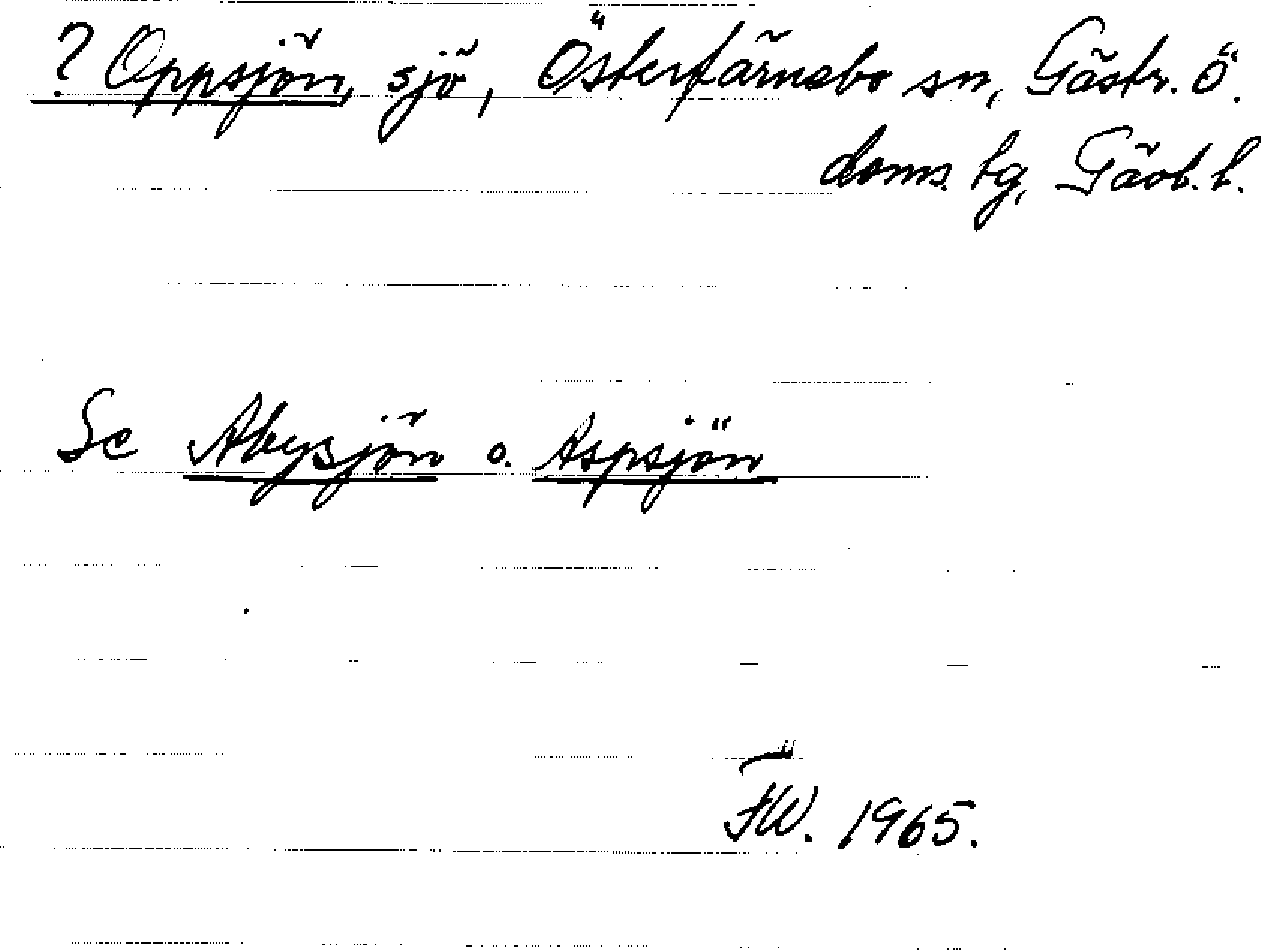 ? Oppsjön, sjö, Österfärnebo sn, Gästr. ö.
doms. tg, Gävl. l.
Se Abysjön o. Aspsjön
FW. 1965.